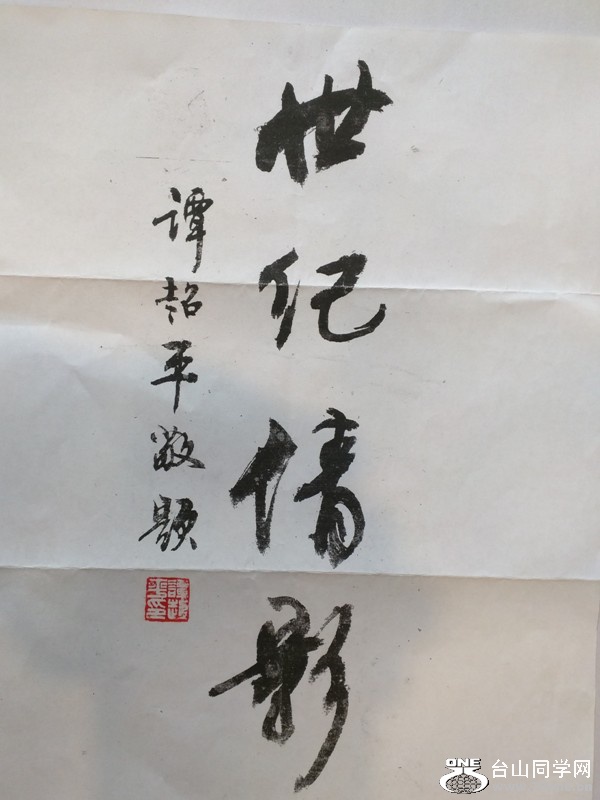 世纪倩影
谭超平敬题
ONE
台山同学网